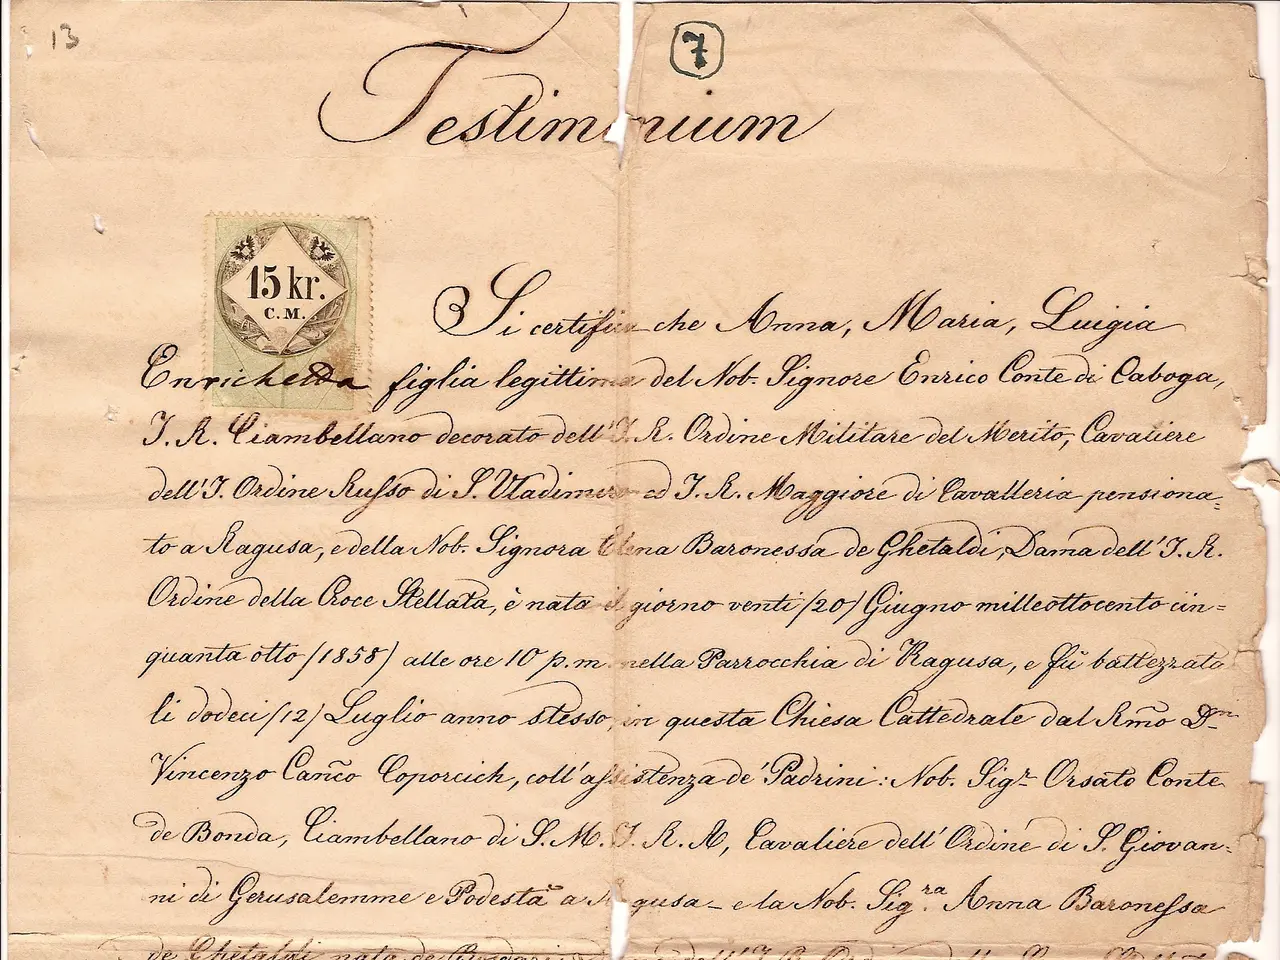 13
7
Testimonium
15 kr.
C. M.
Si certifica che Anna, Maria, Luigia
Enrichetta figlia legittima del Nob. Signore Enrico Conte di Caboga,
I. R. Ciambellano decorato dell' I. R. Ordine Militare del Merito, Cavaliere
dell' I. Ordine Russo di S. Vladimiro ed I. R. Maggiore di Cavalleria pensiona=
to a Ragusa, e della Nob. Signora Elena Baronessa de Ghetaldi, Dama dell' I. R.
Ordine della Croce Stellata, è nata il giorno venti /20/ Giugno milleottocento cin=
quanta otto /1858/ alle ore 10 p. m. nella Parrocchia di Ragusa, e fù battezzata
li dodeci /12/ Luglio anno stesso, in questa Chiesa Cattedrale dal Rmo Dn
Vincenzo Canco Coporcich, coll' assistenza de' Padrini: Nob. Sigr Orsato Conte
de Bonda, Ciambellano di S. M. I. R. A, Cavaliere dell' Ordine di S. Giovan=
ni di Gerusalemme e Podestà a Ragusa - e la Nob. Sig.ra Anna Baronessa
de Ghetaldi nata de